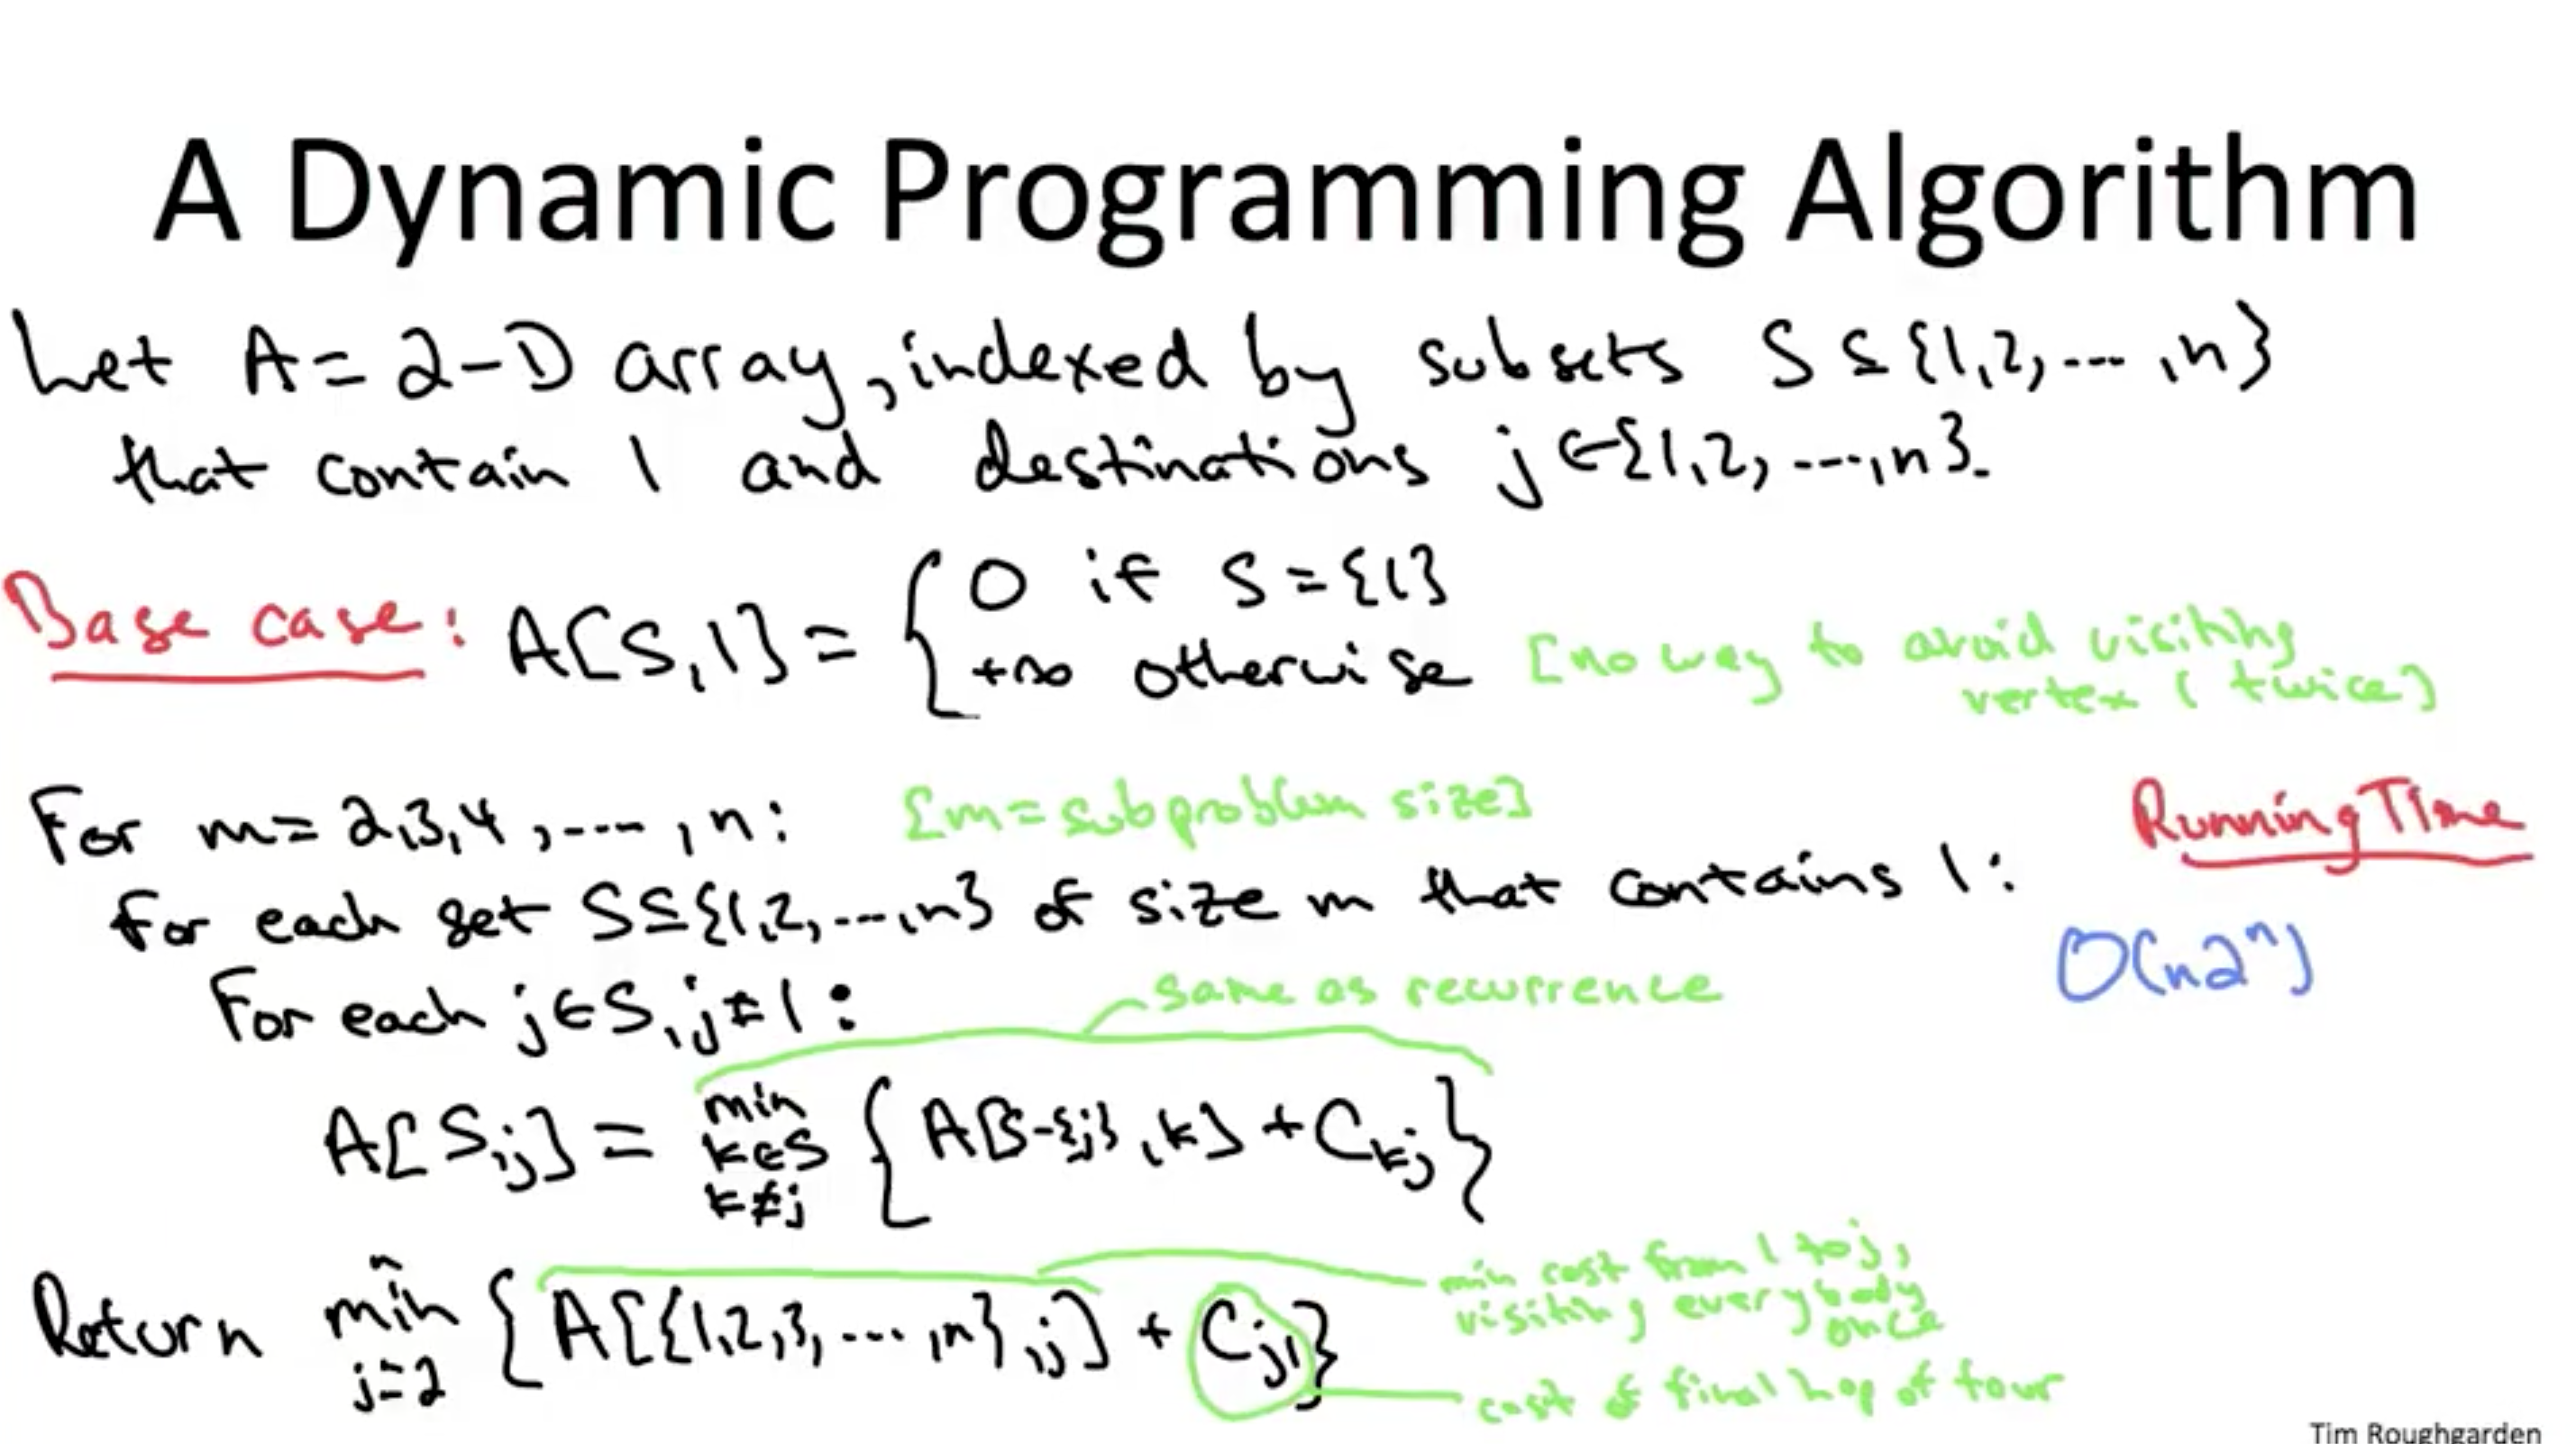 A Dynamic Programming Algorithm
Let A = 2-D array, indexed by subsets S ⊆ {1,2,...,n}
that contain 1 and destinations j ∈ {1,2,...,n}.
Base case: A[S,1] = { 0 if S = {1}
+∞ otherwise [no way to avoid visiting
vertex 1 twice]
For m = 2,3,4,...,n: [m = subproblem size]
Running Time
For each set S ⊆ {1,2,...,n} of size m that contains 1:
O(n2ⁿ)
For each j ∈ S, j ≠ 1:
same as recurrence
A[S,j] = min k∈S k≠j { A[S-{j},k] + C_kj }
Return min j=2 n { A[{1,2,3,...,n},j] + C_j1 }
min cost from 1 to j,
visiting everybody
once
cost of final hop of tour
Tim Roughgarden